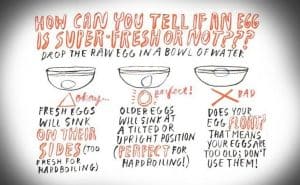 HOW CAN YOU TELL IF AN EGG
IS SUPER-FRESH OR NOT???
DROP THE RAW EGG IN A BOWL OF WATER
okay...
FRESH EGGS
WILL SINK
ON THEIR
SIDES (TOO
FRESH FOR
HARDBOILING)
perfect!
OLDER EGGS
WILL SINK AT
A TILTED OR
UPRIGHT POSITION
(PERFECT FOR
HARDBOILING!)
BAD
DOES YOUR
EGG FLOAT?
THAT MEANS
YOUR EGGS ARE
TOO OLD; DON'T
USE THEM!